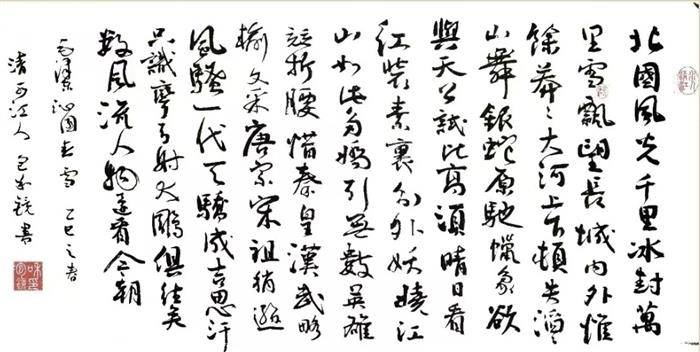 北國風光千里冰封萬
里雪飄望長城内外惟
餘莽々大河上下頓失滔々
山舞銀蛇原馳蠟象欲
與天公試比高須晴日看
红裝素裹分外妖嬈江
山如此多嬌引無數英雄
競折腰惜秦皇漢武略
输文采唐宗宋祖稍遜
風騷一代天驕成吉思汗
只識彎弓射大鵰俱往矣
数風流人物還看今朝
毛澤東沁園春雪 乙巳之春
江人 鏡書